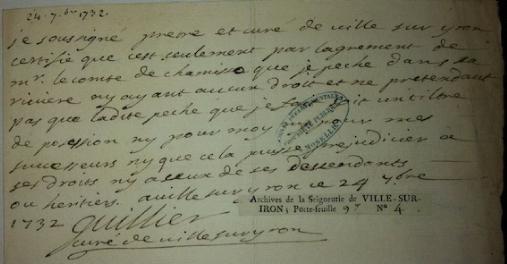 24. 7.bre 1732.
je soussigné prestre et curé de ville sur yron
certifie que cest seulement par lagrement de
mr. le comte de chamisso que je peche dans sa
riviere ny ayant aucun droit et ne pretendant
pas que ladite peche que je un tiltre
de possion ny pour moy ny pour mes
successeurs ny que cela puisse prejudicier a
ses droits ny a ceux de ses dessendants
ou heritiers. a ville sur yron ce 24 7.bre
1732 Guillier
curé de ville sur yron
MOSELLE
Archives de la Seigneurie de VILLE-SUR-
IRON; Porte-feuille 9e No 4.